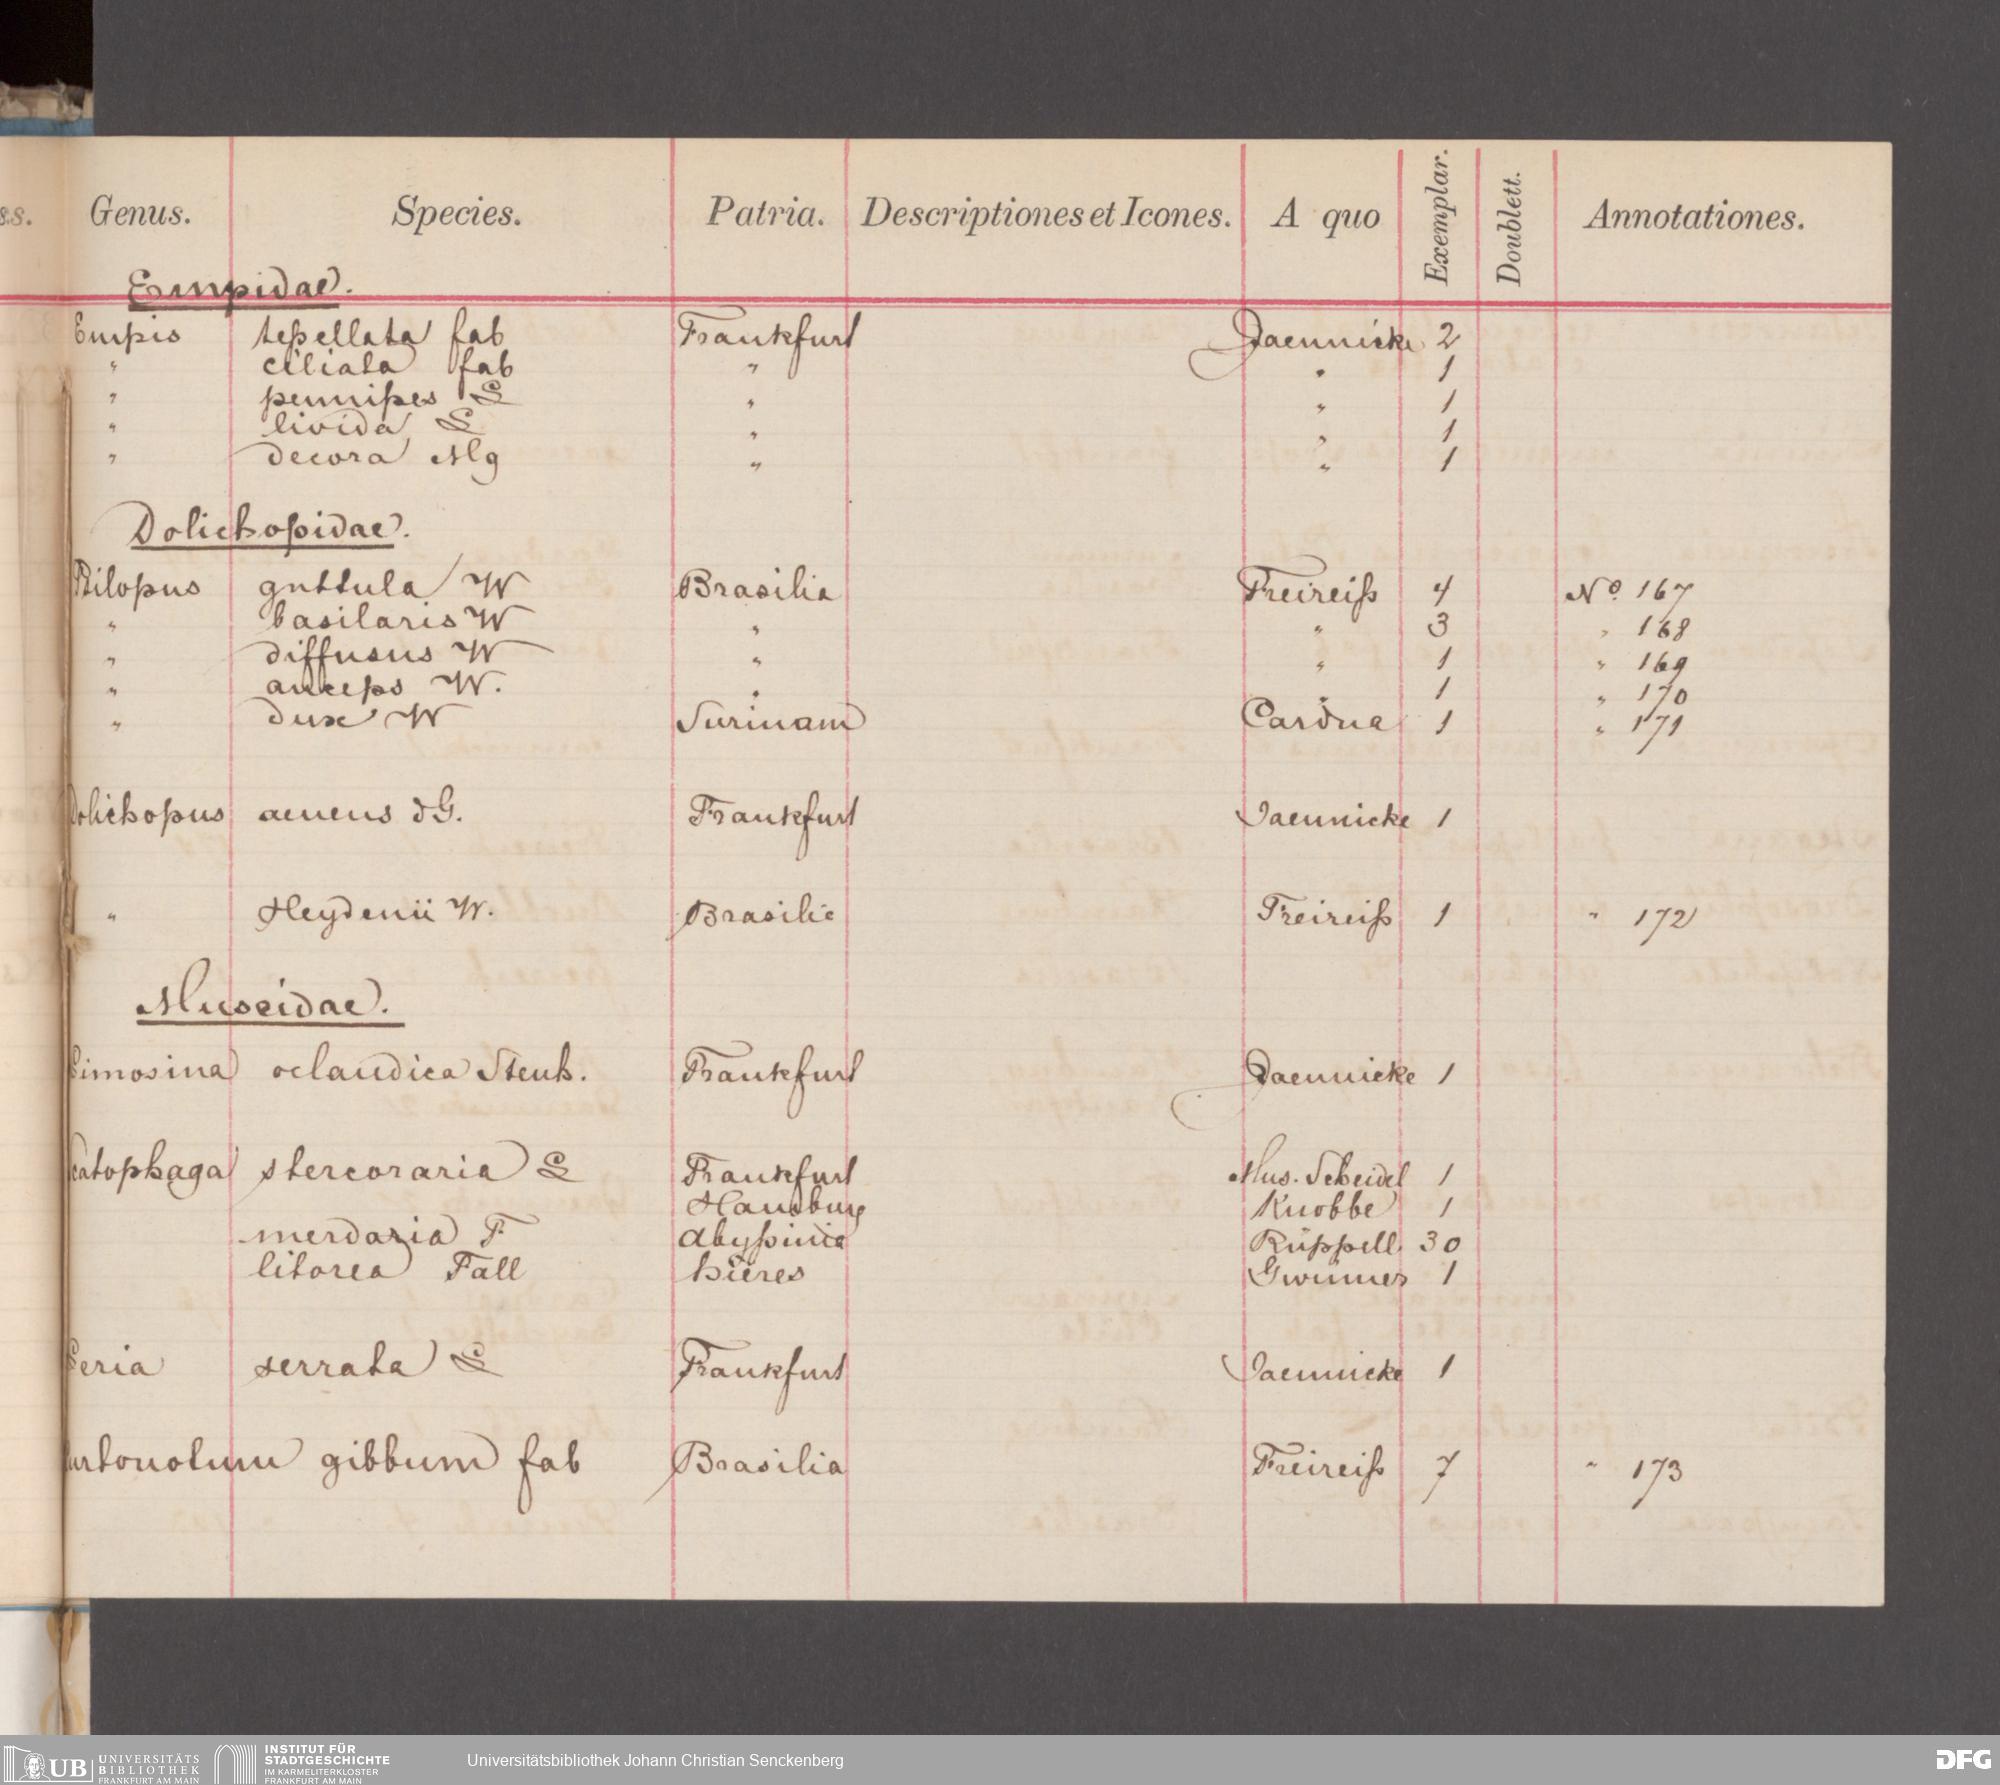 ss. Genus. Species. Patria. Descriptiones et Icones. A quo Exemplar. Doublett. Annotationes.
Empidae.
Empis teßellata fab Frankfurt Jaennicke 2
" ciliata fab " " 1
" pennipes L " " 1
" livida L " " 1
" decora Mg " " 1
Dolichopidae.
Ptilopus guttula W Brasilia Freireiß 4 No. 167
" basilaris W " " 3 " 168
" diffusus W " " 1 " 169
" anceps W. " " 1 " 170
" dux W Surinam Cardua 1 " 171
Dolichopus aeneus dG. Frankfurt Jaennicke 1
" Heydenii W. Brasilia Freireiß 1 " 172
Muscidae.
Limosina Stenh. Frankfurt Jaennicke 1
Scatophaga stercoraria L Frankfurt Mus. Scheidel 1
Hamburg Knobbe 1
merdaria F Abyßinia Rüppell 30
litorea Fall hières Gwinner 1
eria serrata L Frankfurt Jaennicke 1
urtonotum gibbum fab Brasilia Freireiß 7 " 173
UB UNIVERSITÄTS BIBLIOTHEK FRANKFURT AM MAIN
INSTITUT FÜR STADTGESCHICHTE IM KARMELITERKLOSTER FRANKFURT AM MAIN
Universitätsbibliothek Johann Christian Senckenberg
DFG